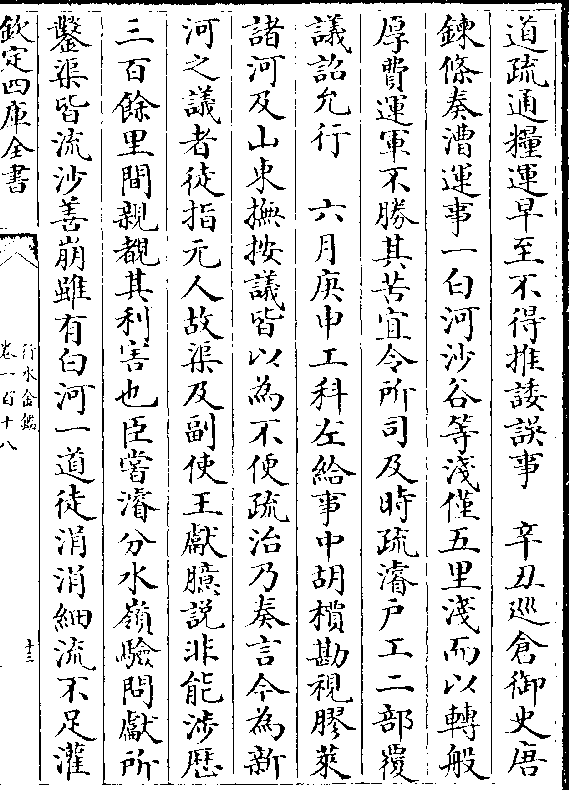 道疏通糧運早至不得推諉誤事　辛丑巡倉御史唐
鍊條奏漕運事一白河沙谷等淺僅五里淺而以轉般
厚費運軍不勝其苦宜令所司及時疏濬户工二部覆
議詔允行　六月庚申工科左給事中胡檟勘視膠萊
諸河及山東撫按議皆以為不便疏治乃奏言今為新
河之議者徒指元人故渠及副使王獻臆説非能涉歴
三百餘里間親覩其利害也臣嘗濬分水嶺驗問獻所
鑿渠皆流沙善崩雖有白河一道徒涓涓細流不足灌
欽定四庫全書
行水金鑑
卷一百十八
十三